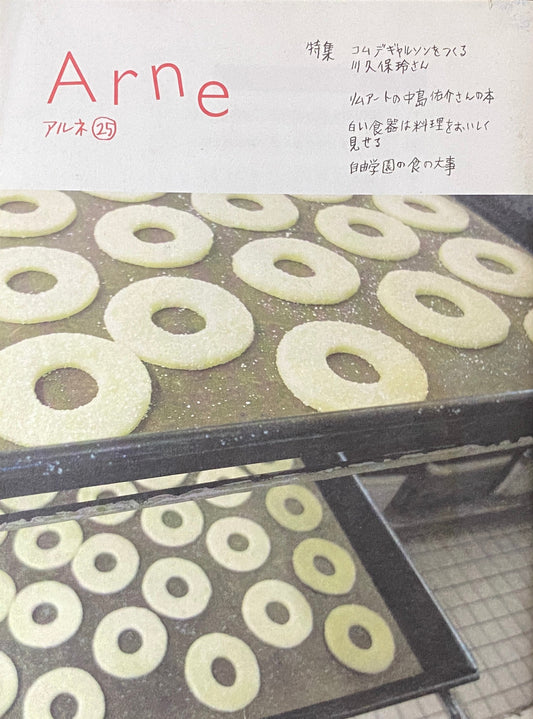 Arne
アルネ㉕
特集 コムデギャルソンをつくる
川久保玲さん
リムアートの中島佑介さんの本
白い食器は料理をおいしく
見せる
自由学園の食の大事